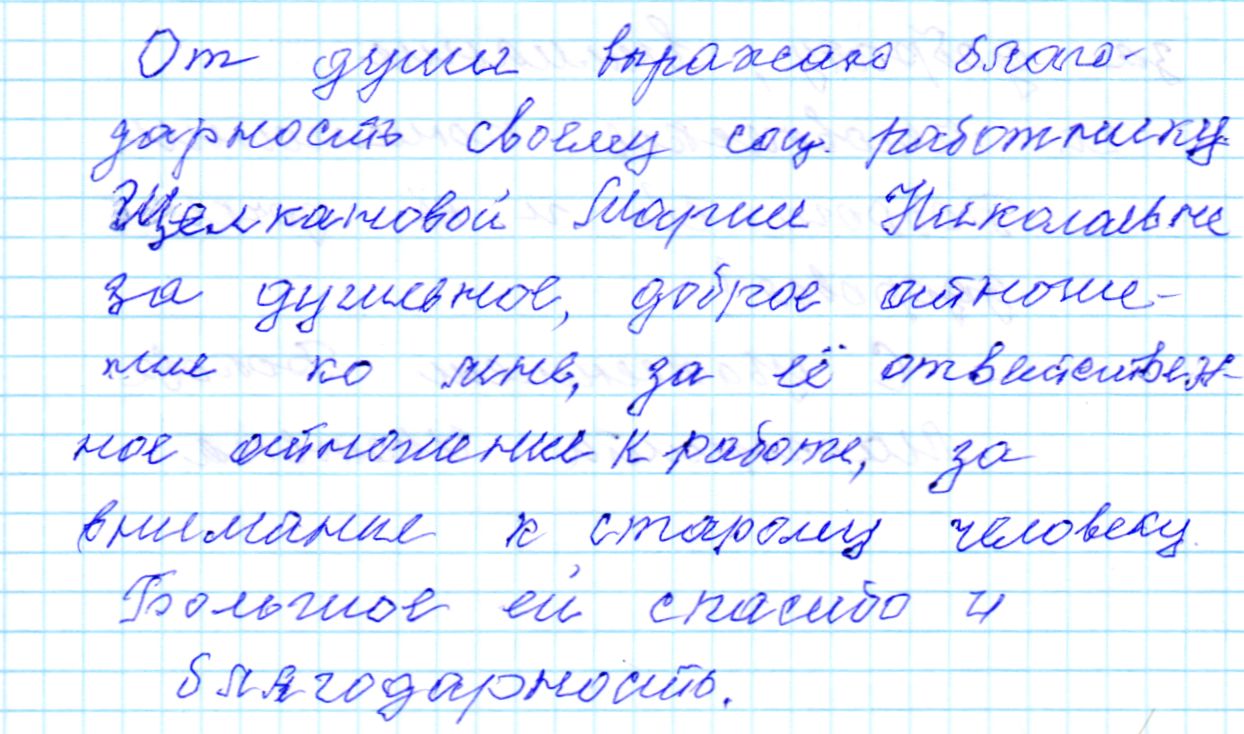 От души выражаю благо-
дарность своему соц. работнику
Щелкановой Марии Николаевне
за душевное, доброе отноше-
ние ко мне, за её ответствен-
ное отношение к работе, за
внимание к старому человеку.
Большое ей спасибо и
благодарность.